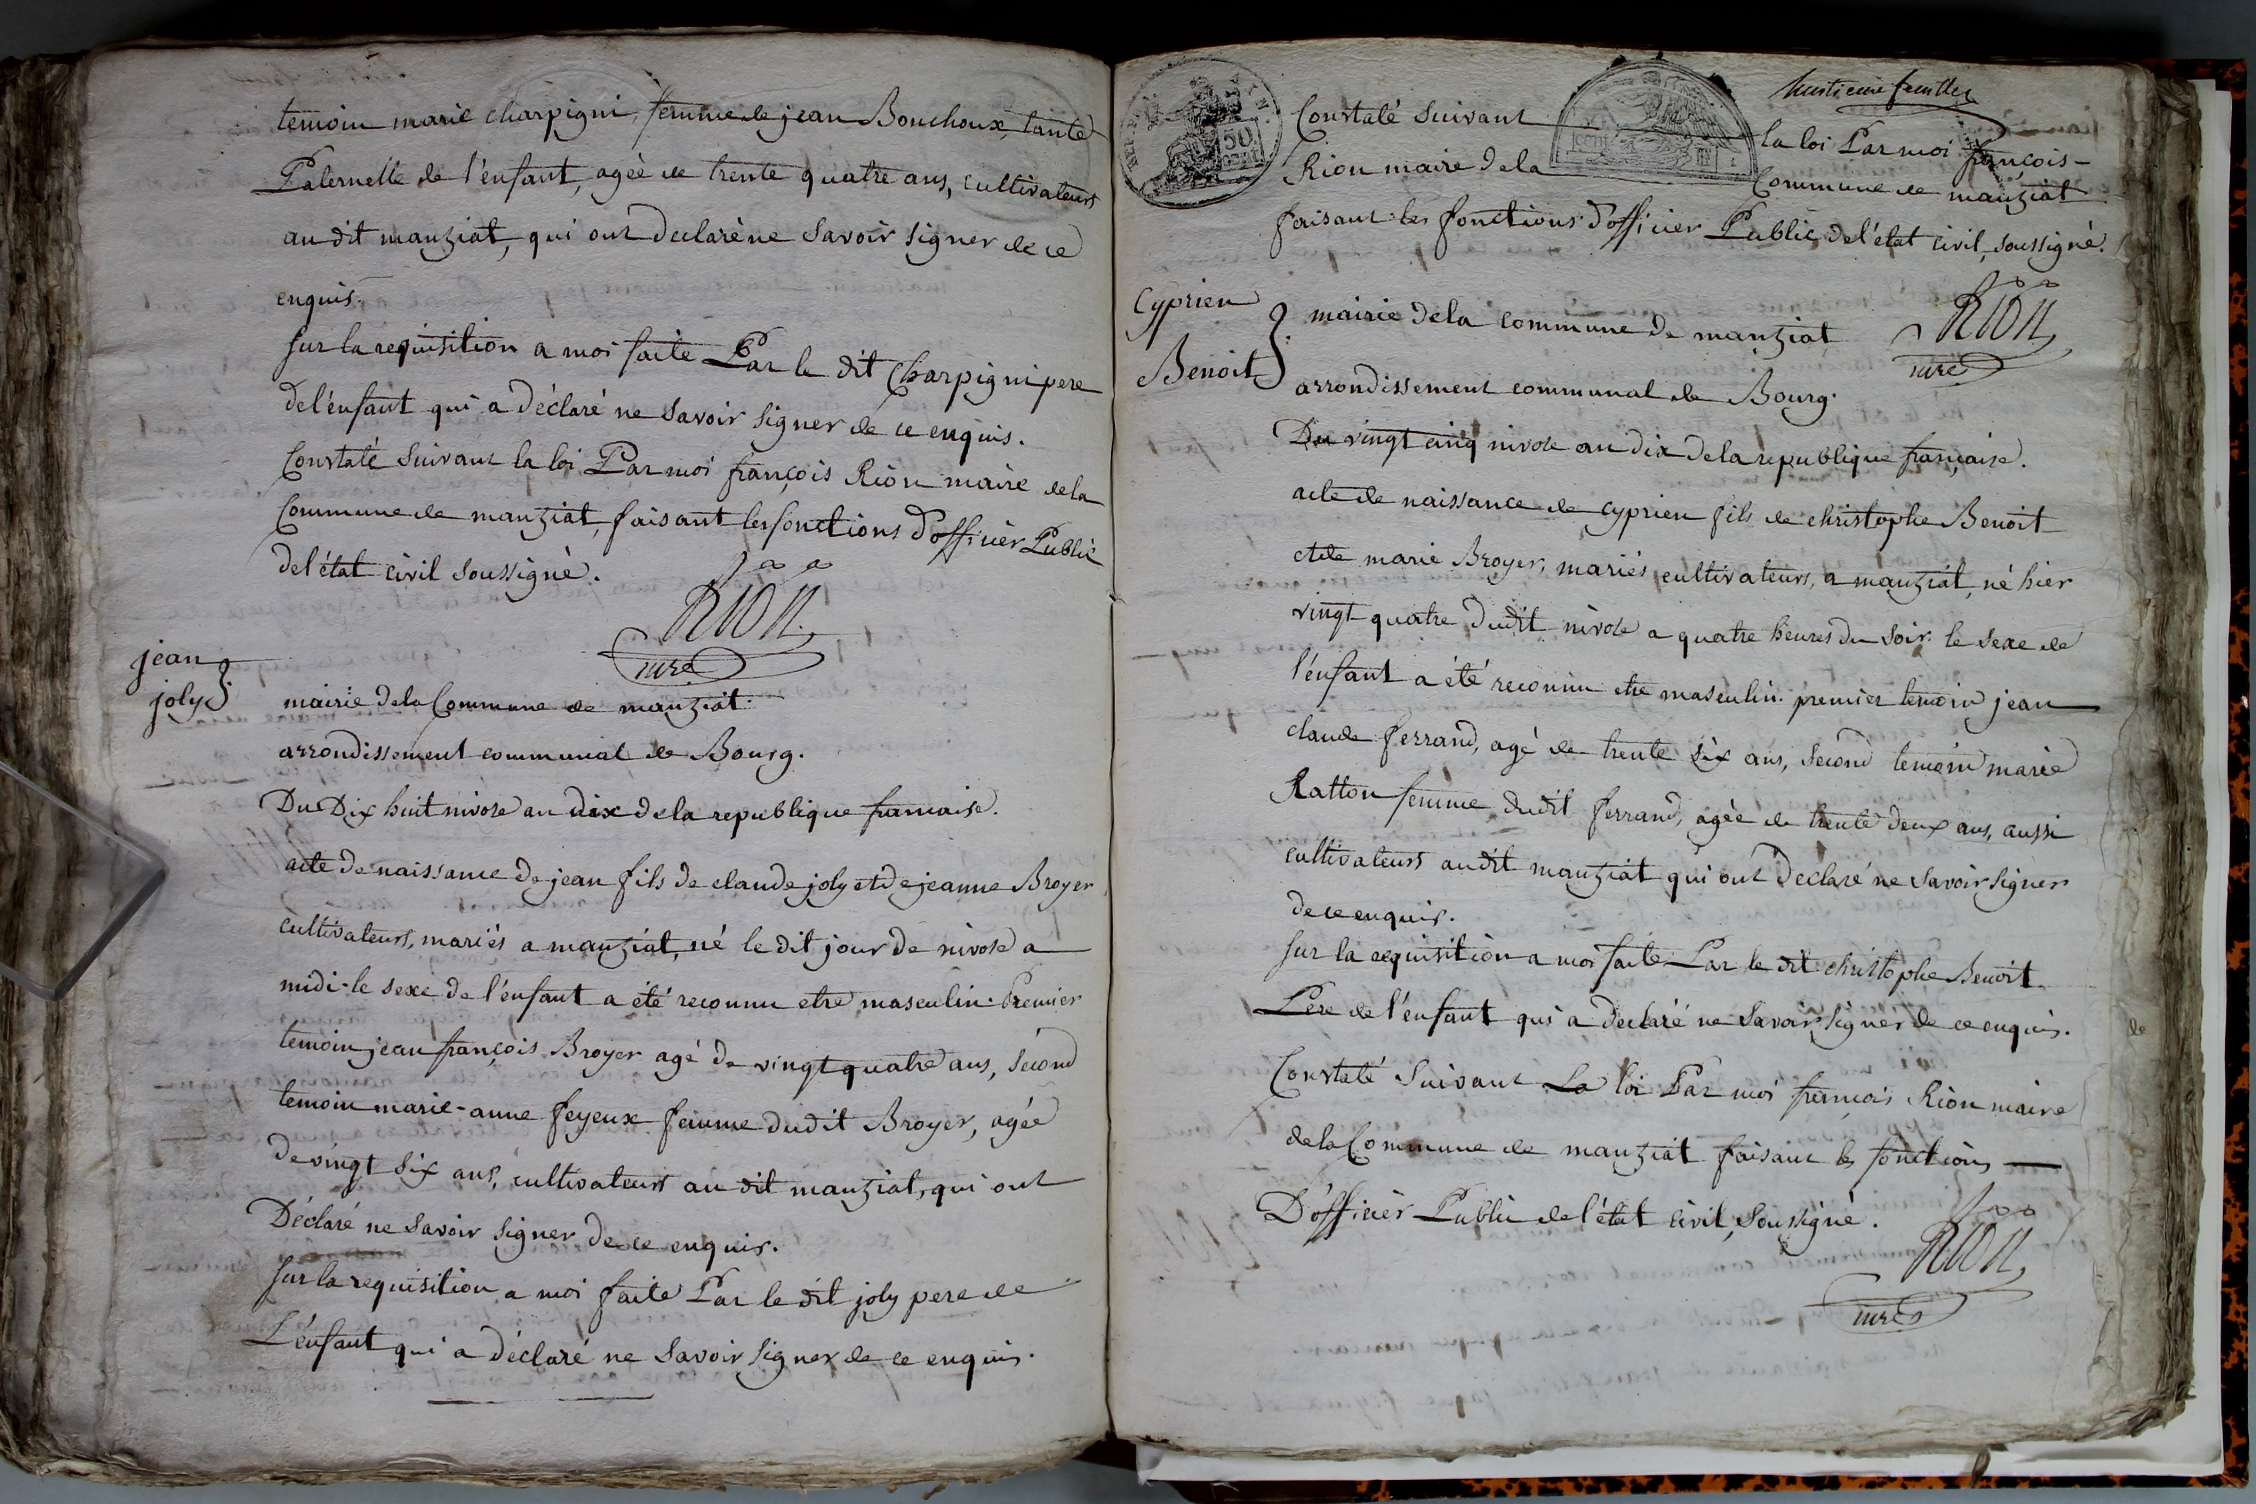 temoin marie charpigni, femme de jean Bouchoux, tante
Paternelle de l'énfant, agèe de trente quatre ans, cultivateurs
au dit manziat, qui ont declaré ne savoir signer de ce
enquis.
sur la requisition a moi faite Par le dit Charpigni pere
de l'énfant qui a déclaré ne savoir signer de ce enquis.
Constaté suivant la loi Par moi françois Rion maire de la
Commune de manziat, faisant les fonctions d'officier Public
de l'état civil soussigné.
Rion
jean
joly
mairie de la Commune de manziat.
arrondissement communal de Bourg.
Du Dix huit nivose an dix de la republique francaise.
acte de naissance de jean fils de claude joly et de jeanne Broyer
cultivateurs, mariés a manziat, né le dit jour de nivose a
midi. le sexe de l'énfant a été reconnu etre masculin. Premier
temoin jean françois Broyer agé de vingt quatre ans, sécond
temoin marie-anne feyeux femme dudit Broyer, agée
de vingt six ans, cultivateurs au dit manziat, qui ont
Déclaré ne savoir signer de ce enquis.
sur la requisition a moi faite Par le dit joly pere de
L'énfant qui a déclaré ne savoir signer de ce enquis.
huitieme feuillet
50
Constaté suivant la loi Par moi françois
Rion maire de la Commune de manziat
faisant les fonctions d'officier Public de l'état civil, soussigné.
Rion
Cyprien
Benoit
mairie de la commune de manziat
arrondissement communal de Bourg.
Du vingt cinq nivose an dix de la republique française.
acte de naissance de cyprien fils de christophe Benoit
et de marie Broyer, mariés cultivateurs, a manziat, né hier
vingt quatre dudit nivose a quatre heures du soir. le sexe de
l'énfant a été reconnu etre masculin. premier temoin jean
claude ferrand, agé de trente six ans, second temoin marie
Ratton femme dudit ferrand, agèe de trente deux ans, aussi
cultivateurs au dit manziat qui ont declaré ne savoir signer
de ce enquis.
sur la requisition a moi faite Par le dit christophe Benoit
Pere de l'énfant qui a declaré ne savoir signer de ce enquis.
Constaté suivant La loi Par moi françois Rion maire
de la Commune de manziat faisant les fonctions
D'officier Public de l'état civil, soussigné.
Rion